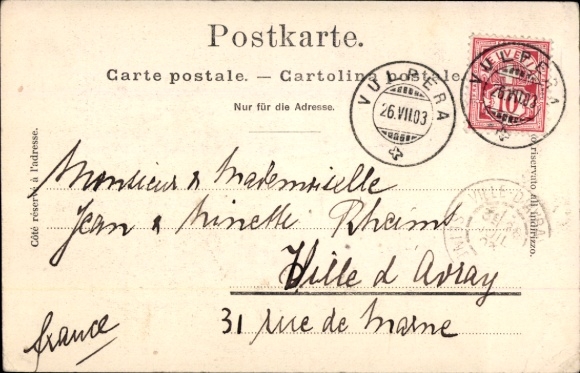 Postkarte.
Carte postale. — Cartolina postale.
Nur für die Adresse.
Côté réservé à l'adresse.
riservato all'indirizzo.
VULPERA
26.VII.03
VULPERA
26.VII.03
10
VILLE D'
Monsieur & Mademoiselle
Jean & Minette Rheims
Ville d Avray
31 rue de Marne
france